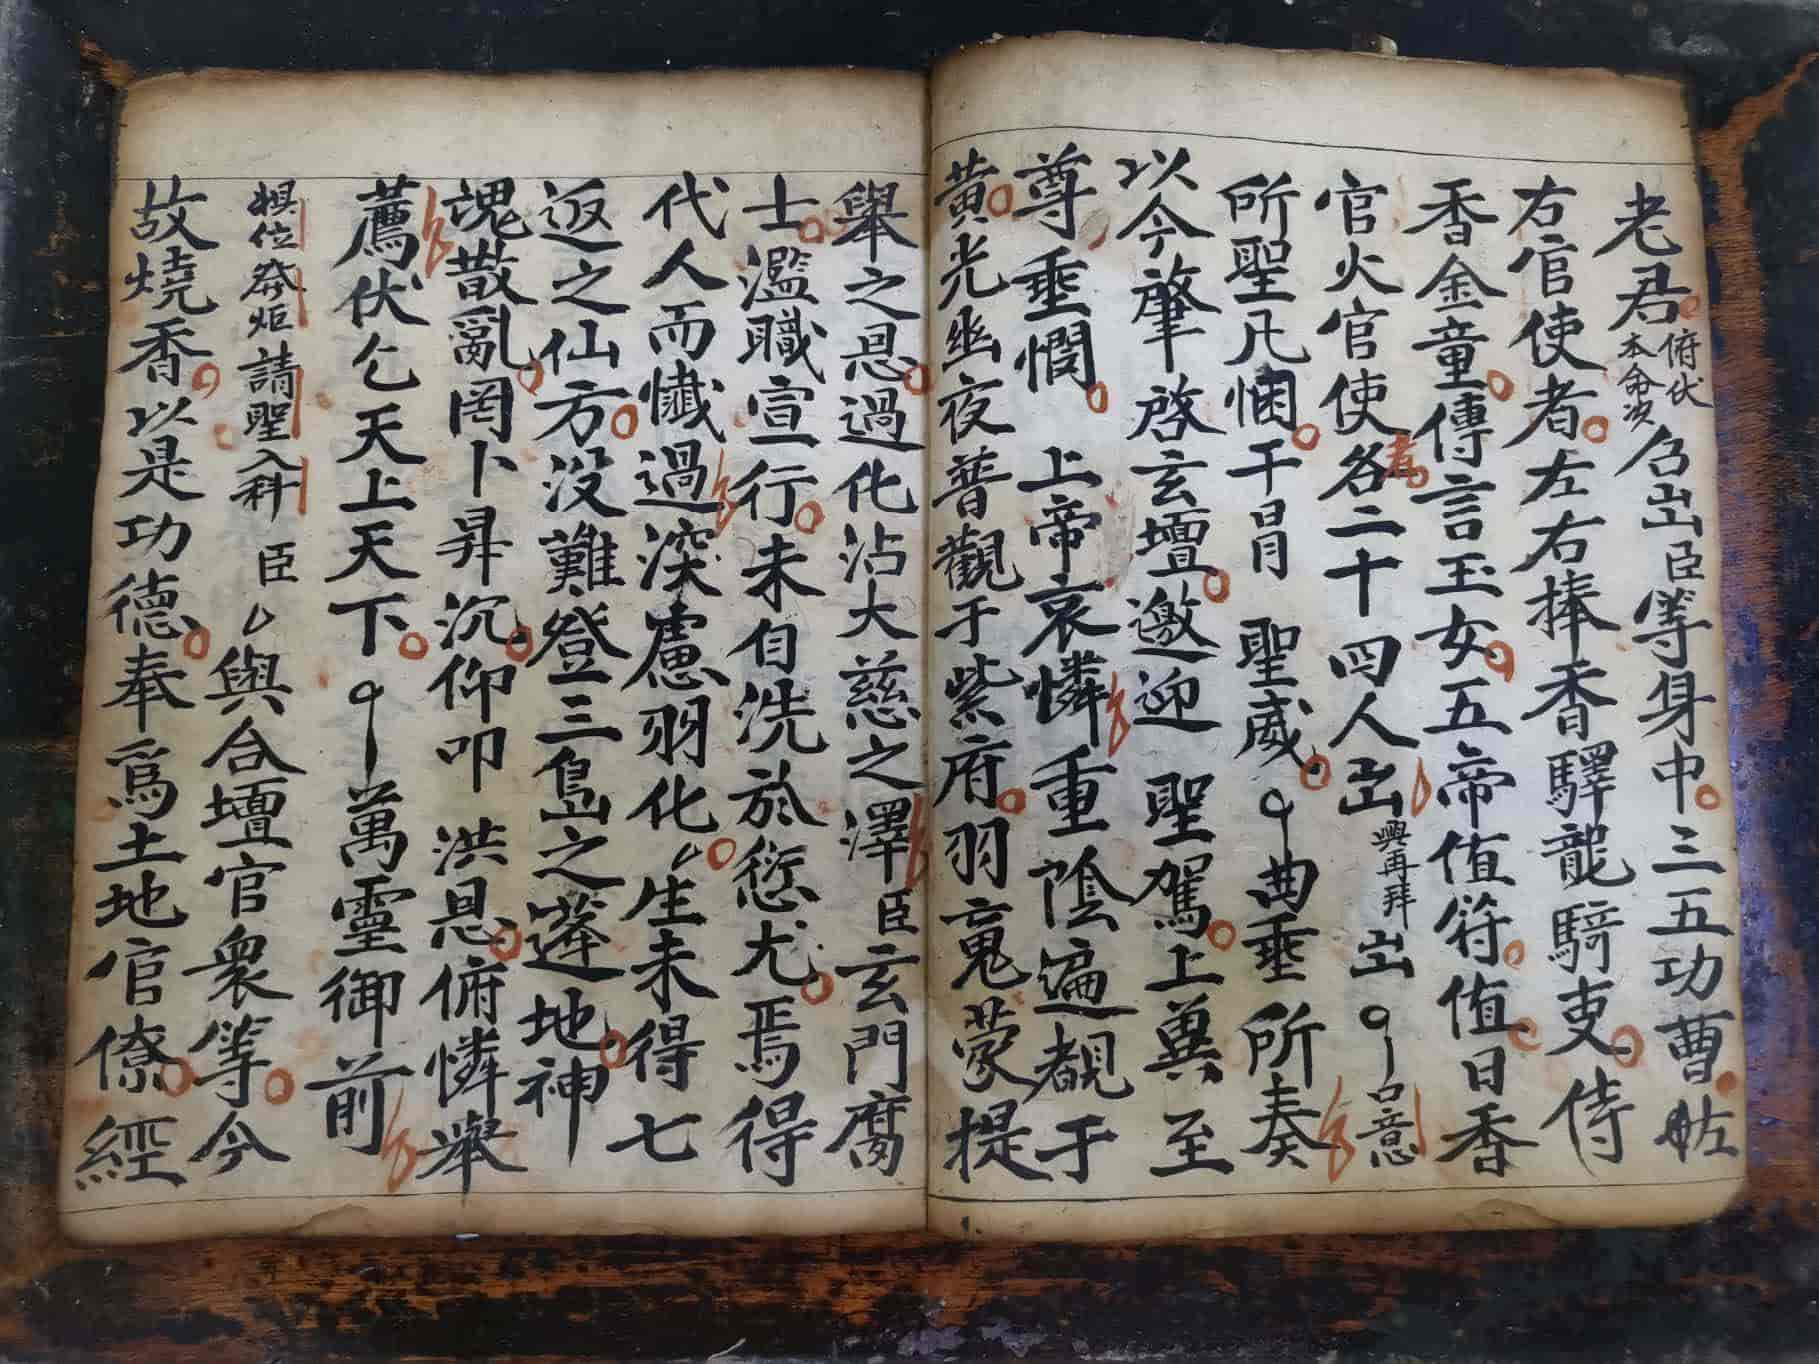 老君俯伏本命次召出臣等身中三五功曹左
右官使者左右捧香驛龍騎吏侍
香金童傳言玉女五帝值符值日香
官火官使者各二十四人出興再拜出口意
所聖凡悃干冒聖威曲垂所奏
以今肇啓玄壇邀迎聖駕上冀至
尊垂憫上帝哀憐重陰遍覩于
黃光幽夜普觀于紫府羽蒙提
舉之恩過化沾大慈之澤臣玄門腐
士濫職宣行未自洗於愆尤焉得
代人而懺過深慮羽化生未得七
返之仙方没難登三島之蓬地神
魂散亂罔卜昇沉仰叩洪恩俯憐舉
薦伏乞天上天下萬靈御前
具位發炬請聖入科臣與合壇官衆等今
故燒香以是功德奉爲土地官僚經